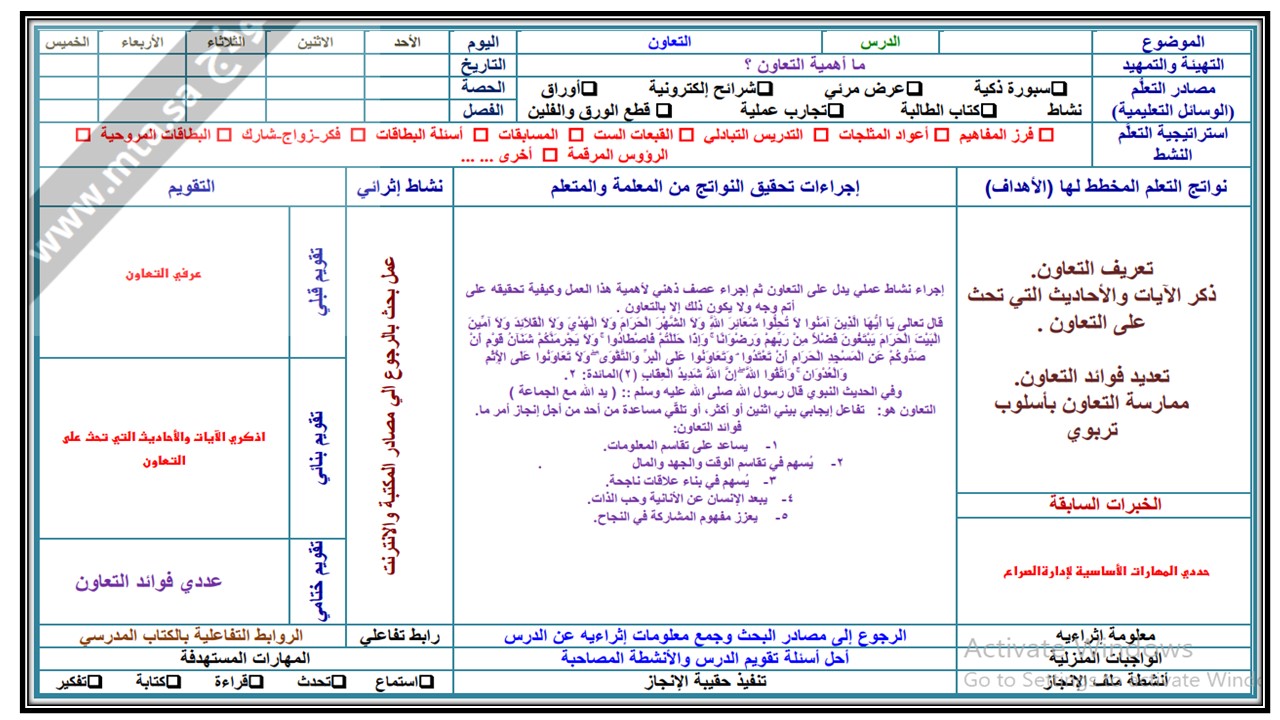 الموضوع
الدرس
التعاون
اليوم
الأحد
الاثنين
الثلاثاء
الأربعاء
الخميس
التهيئة والتمهيد
ما أهمية التعاون ؟
التاريخ
مصادر التعلّم
(الوسائل التعليمية)
❑سبورة ذكية ❑عرض مرئي ❑شرائح إلكترونية ❑أوراق
نشاط ❑كتاب الطالبة ❑تجارب عملية ❑ قطع الورق والفلين
الحصة
الفصل
استراتيجية التعلّم
النشط
□ فرز المفاهيم □ أعواد المثلجات □ التدريس التبادلي □ القبعات الست □ المسابقات □ أسئلة البطاقات □ فكر-زواج-شارك □ البطاقات المروحية □
الرؤوس المرقمة □ أخرى ... ...
نواتج التعلم المخطط لها (الأهداف)
إجراءات تحقيق النواتج من المعلمة والمتعلم
نشاط إثرائي
التقويم
تعريف التعاون.
ذكر الآيات والأحاديث التي تحث
على التعاون .
تعديد فوائد التعاون.
ممارسة التعاون بأسلوب
تربوي
الخبرات السابقة
حددي المهارات الأساسية لإدارة الصراع
إجراء نشاط عملي يدل على التعاون ثم إجراء عصف ذهني لأهمية هذا العمل وكيفية تحقيقه على
أتم وجه ولا يكون ذلك إلا بالتعاون .
قال تعالى يَا أَيُّهَا الَّذِينَ آمَنُوا لَا تُحِلُّوا شَعَائِرَ اللَّهِ وَلَا الشَّهْرَ الْحَرَامَ وَلَا الْهَدْيَ وَلَا الْقَلَائِدَ وَلَا آمِّينَ
الْبَيْتَ الْحَرَامَ يَبْتَغُونَ فَضْلًا مِنْ رَبِّهِمْ وَرِضْوَانًا ۚ وَإِذَا حَلَلْتُمْ فَاصْطَادُوا ۚ وَلَا يَجْرِمَنَّكُمْ شَنَآنُ قَوْمٍ أَنْ
صَدُّوكُمْ عَنِ الْمَسْجِدِ الْحَرَامِ أَنْ تَعْتَدُوا ۘ وَتَعَاوَنُوا عَلَى الْبِرِّ وَالتَّقْوَى ۖ وَلَا تَعَاوَنُوا عَلَى الْإِثْمِ
وَالْعُدْوَانِ ۚ وَاتَّقُوا اللَّهَ ۖ إِنَّ اللَّهَ شَدِيدُ الْعِقَابِ (٢)المائدة: ٢.
وفي الحديث النبوي قال رسول الله صلى الله عليه وسلم :: ( يد الله مع الجماعة )
التعاون هو: تفاعل إيجابي بيني اثنين أو أكثر، أو تلقّي مساعدة من أحد من أجل إنجاز أمر ما.
فوائد التعاون:
١- يساعد على تقاسم المعلومات.
٢- يُسهم في تقاسم الوقت والجهد والمال .
٣- يُسهم في بناء علاقات ناجحة.
٤- يبعد الإنسان عن الأنانية وحب الذات.
٥- يعزز مفهوم المشاركة في النجاح.
عمل بحث بالرجوع الي مصادر المكتبة والانترنت
تقويم قبلي
عرفي التعاون
تقويم بنائي
اذكري الآيات والأحاديث التي تحث على
التعاون
تقويم ختامي
عددي فوائد التعاون
معلومة إثراءيه
الرجوع إلى مصادر البحث وجمع معلومات إثراءيه عن الدرس
رابط تفاعلي
الروابط التفاعلية بالكتاب المدرسي
الواجبات المنزلية
أحل أسئلة تقويم الدرس والأنشطة المصاحبة
المهارات المستهدفة
أنشطة ملف الإنجاز
تنفيذ حقيبة الإنجاز
❑استماع ❑تحدث ❑قراءة ❑كتابة ❑تفكير
Activate Windows
Go to Settings to activate Wind
www.mta.sa